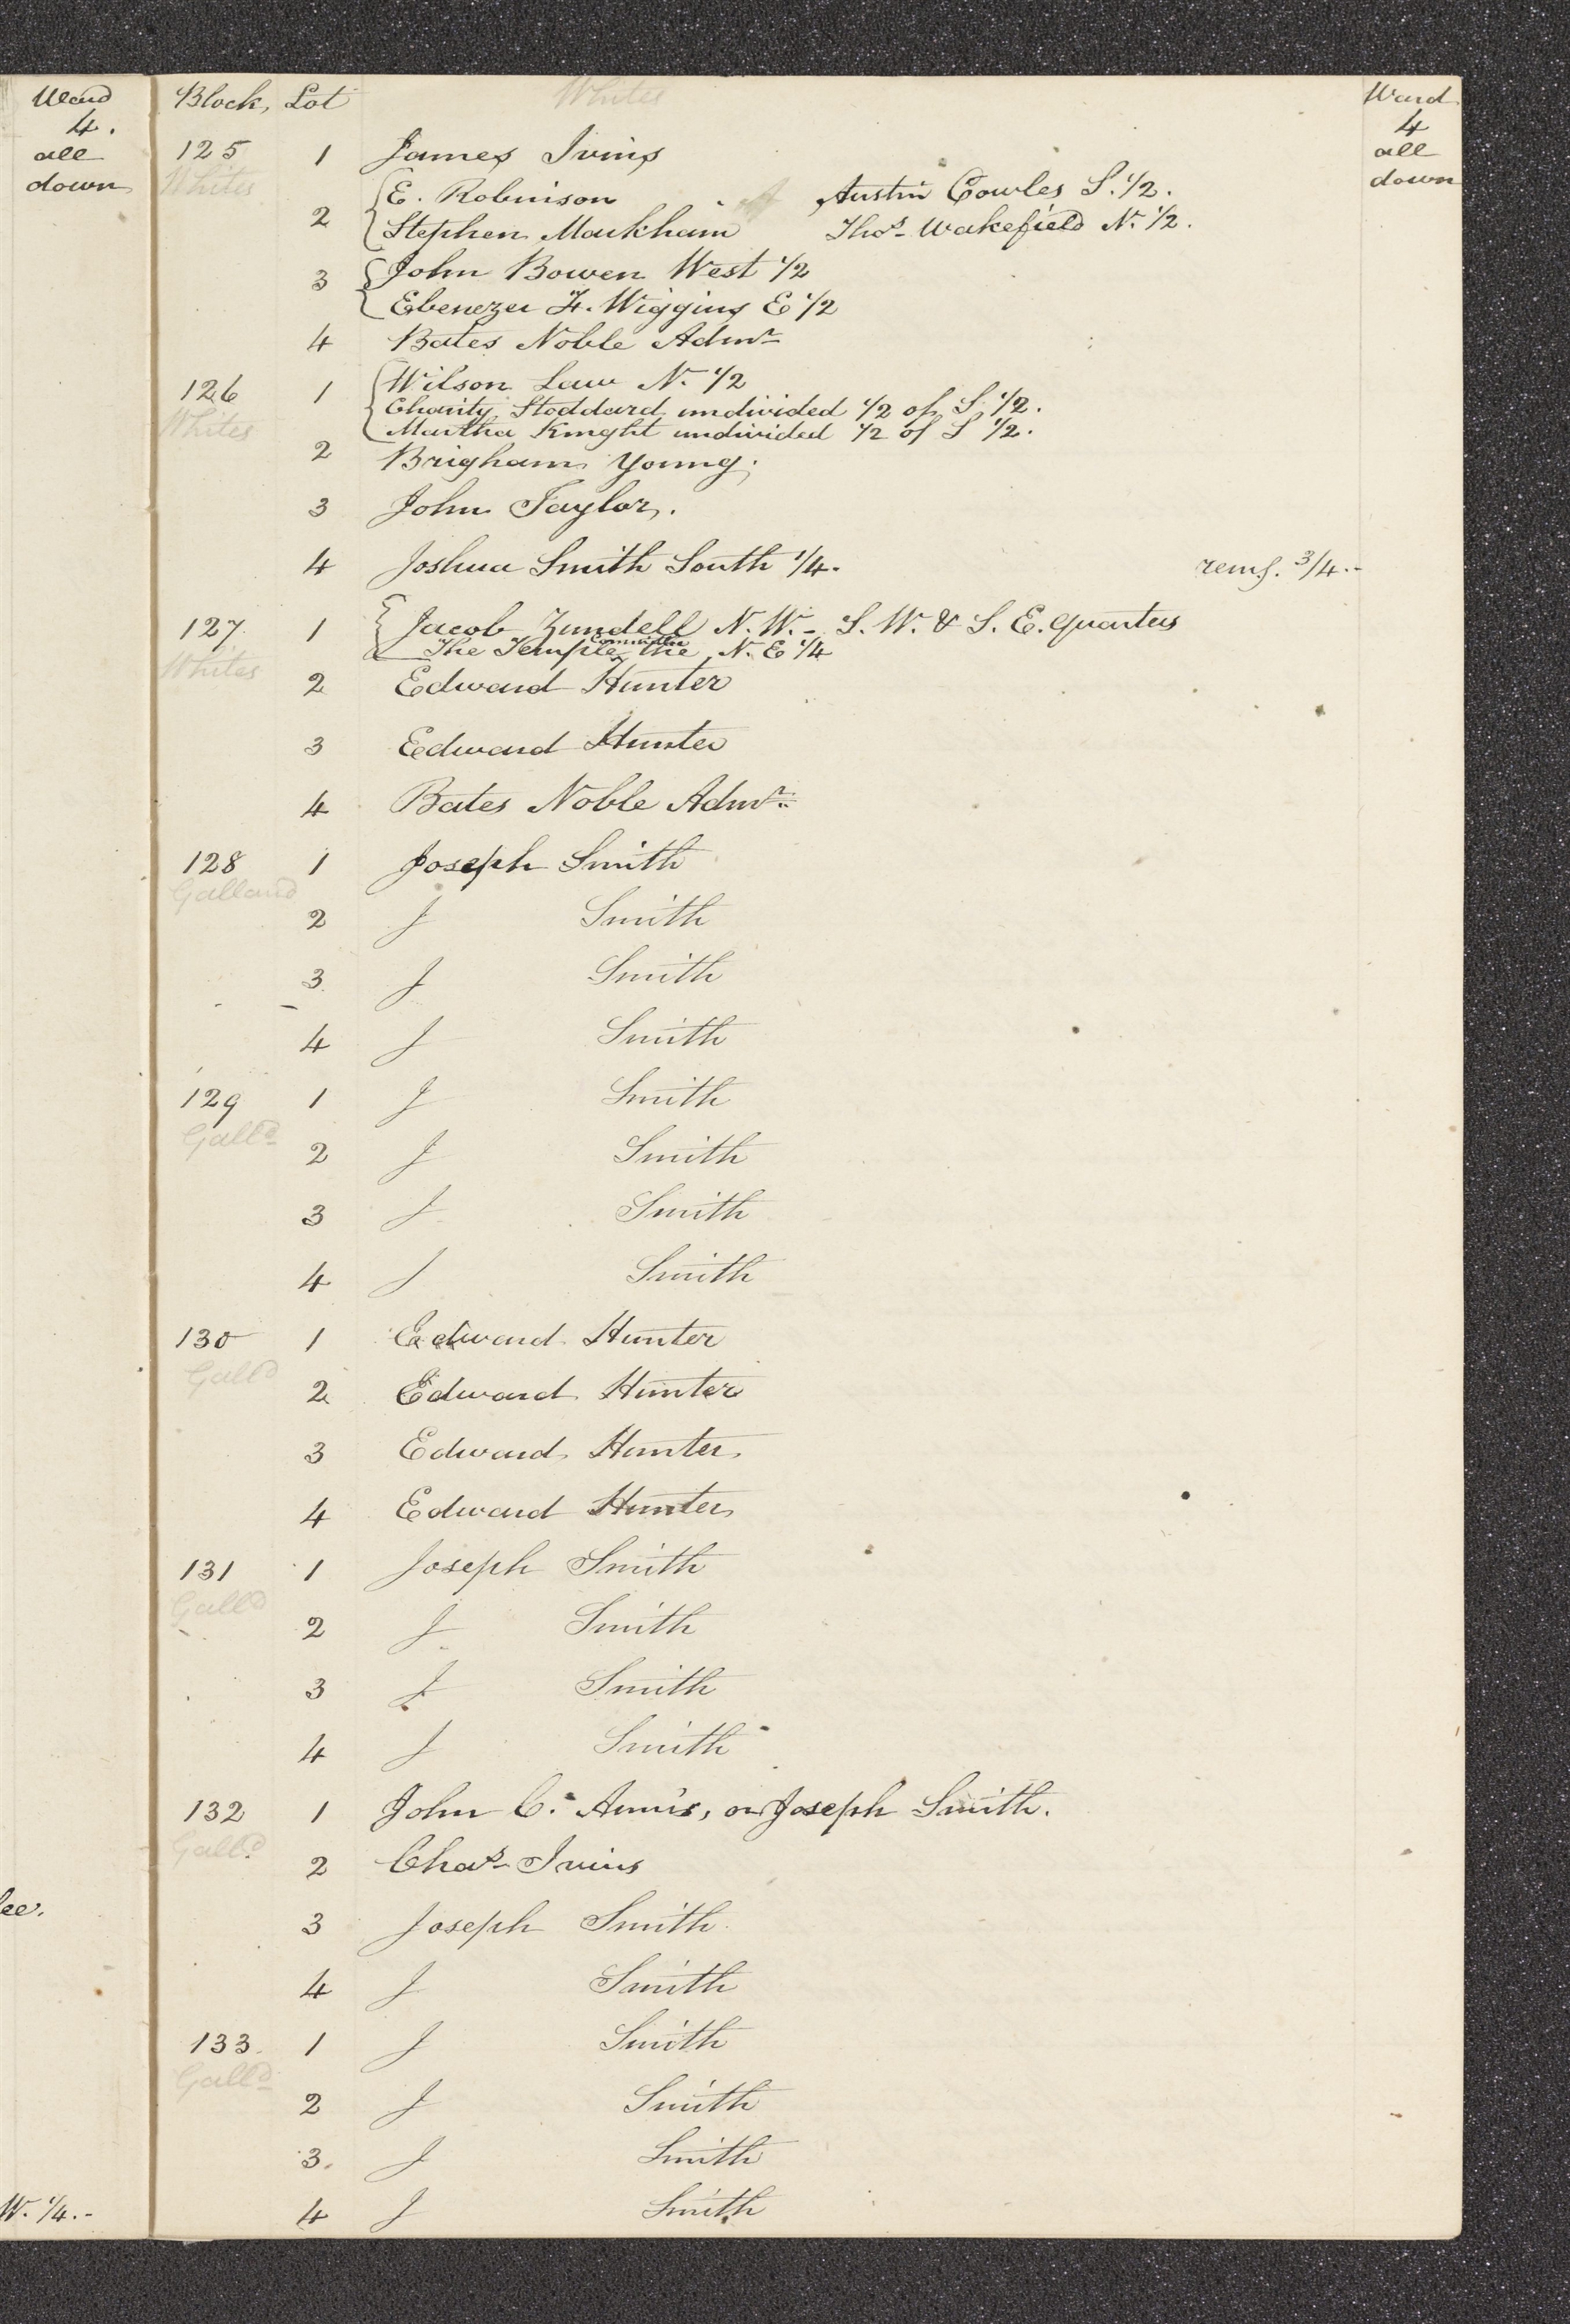 Ward
4.
all
down
lee.
W. 1/4.-
Block, Lot Whites Ward
4
all
down
125 1 James Ivins
Whites
2 E. Robinson Austin Cowles S. 1/2.
Stephen Markham Thos. Wakefield N. 1/2.
3 John Bowen West 1/2
Ebenezer F. Wiggins E 1/2
4 Bates Noble Admr.
126 1 Wilson Law N. 1/2
Whites Charity Stoddard undivided 1/2 of S. 1/2.
Martha Knight undivided 1/2 of S 1/2.
2 Brigham Young.
3 John Taylor.
4 Joshua Smith South 1/4. rems. 3/4.-
127 1 Jacob Zundell N. W. - S. W. & S. E. quarters
Committee
The Temple the N. E 1/4
Whites
2 Edward Hunter
3 Edward Hunter
4 Bates Noble Admr.
128 1 Joseph Smith
Galland
2 J Smith
3 J Smith
4 J Smith
129 1 J Smith
Galld.
2 J Smith
3 J Smith
4 J Smith
130 1 Edward Hunter
Galld
2 Edward Hunter
3 Edward Hunter
4 Edward Hunter
131 1 Joseph Smith
Galld
2 J Smith
3 J Smith
4 J Smith
132 1 John C. Annis, or Joseph Smith.
Galld.
2 Chas. Ivins
3 Joseph Smith
4 J Smith
133. 1 J Smith
Galld.
2 J Smith
3. J Smith
4 J Smith